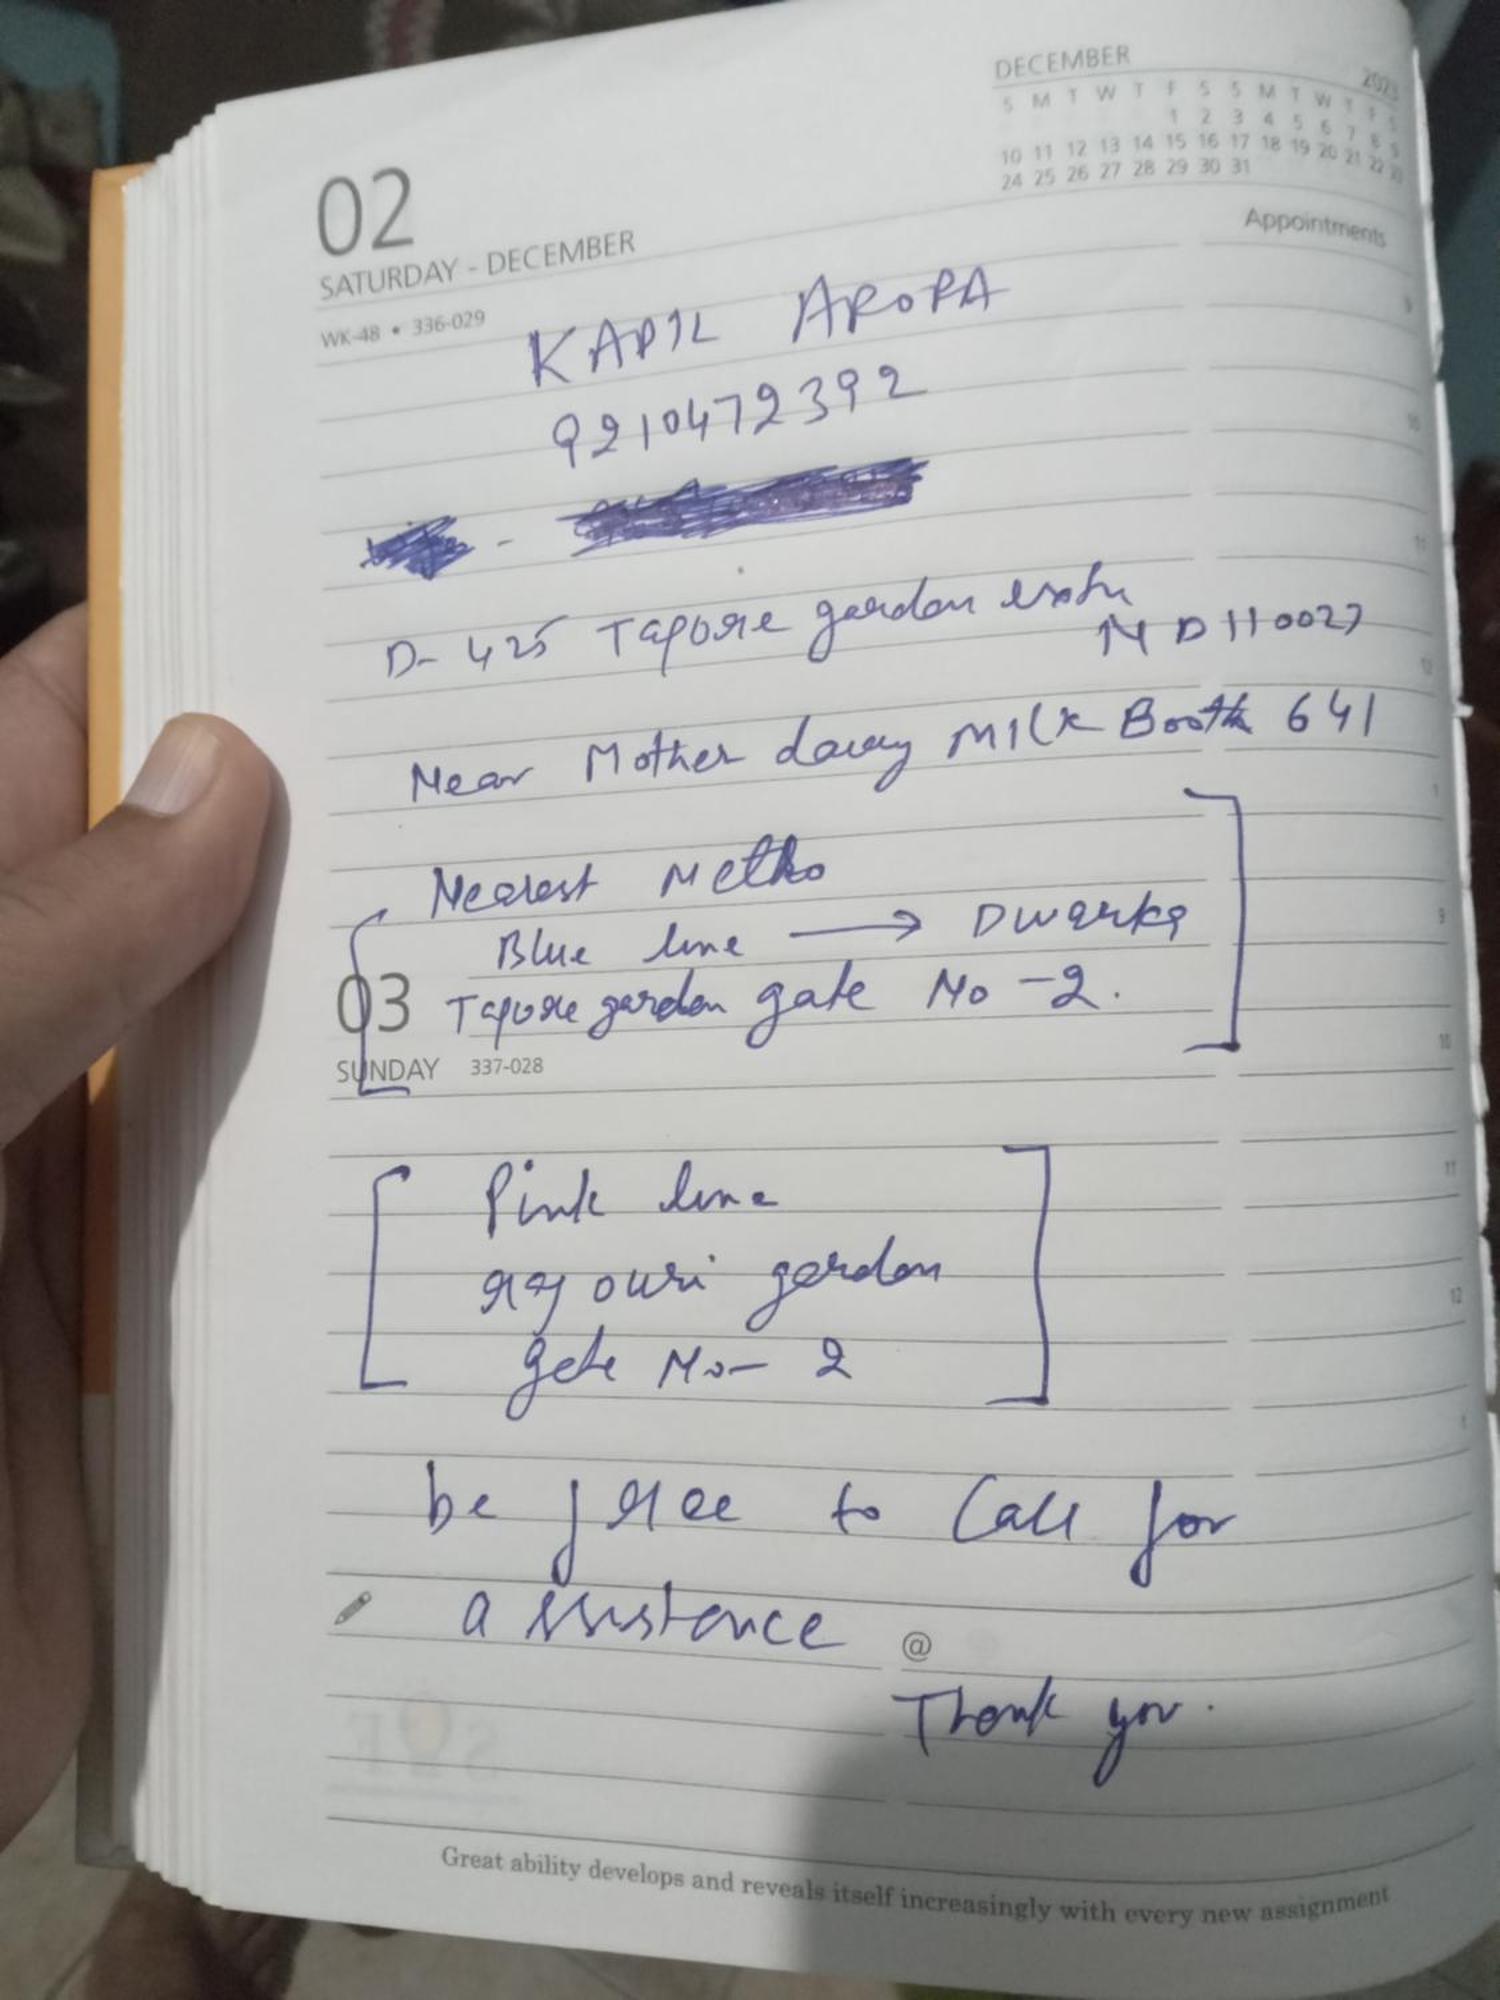 DECEMBER 2023
S M T W T F S S M T W T F S
1 2 3 4 5 6 7 8 9
10 11 12 13 14 15 16 17 18 19 20 21 22 23
24 25 26 27 28 29 30 31
02
SATURDAY - DECEMBER
WK-48 • 336-029
Appointments
KAPIL ARORA
9210472392
D- 425 Tagore garden extn
ND 110027
Near Mother dairy Milk Booth 641
Nearest Metro
Blue line → Dwarka
03 Tagore garden gate No -2.
SUNDAY 337-028
Pink line
rajouri garden
gate No- 2
be free to Call for
assistance @
Thank you.
Great ability develops and reveals itself increasingly with every new assignment